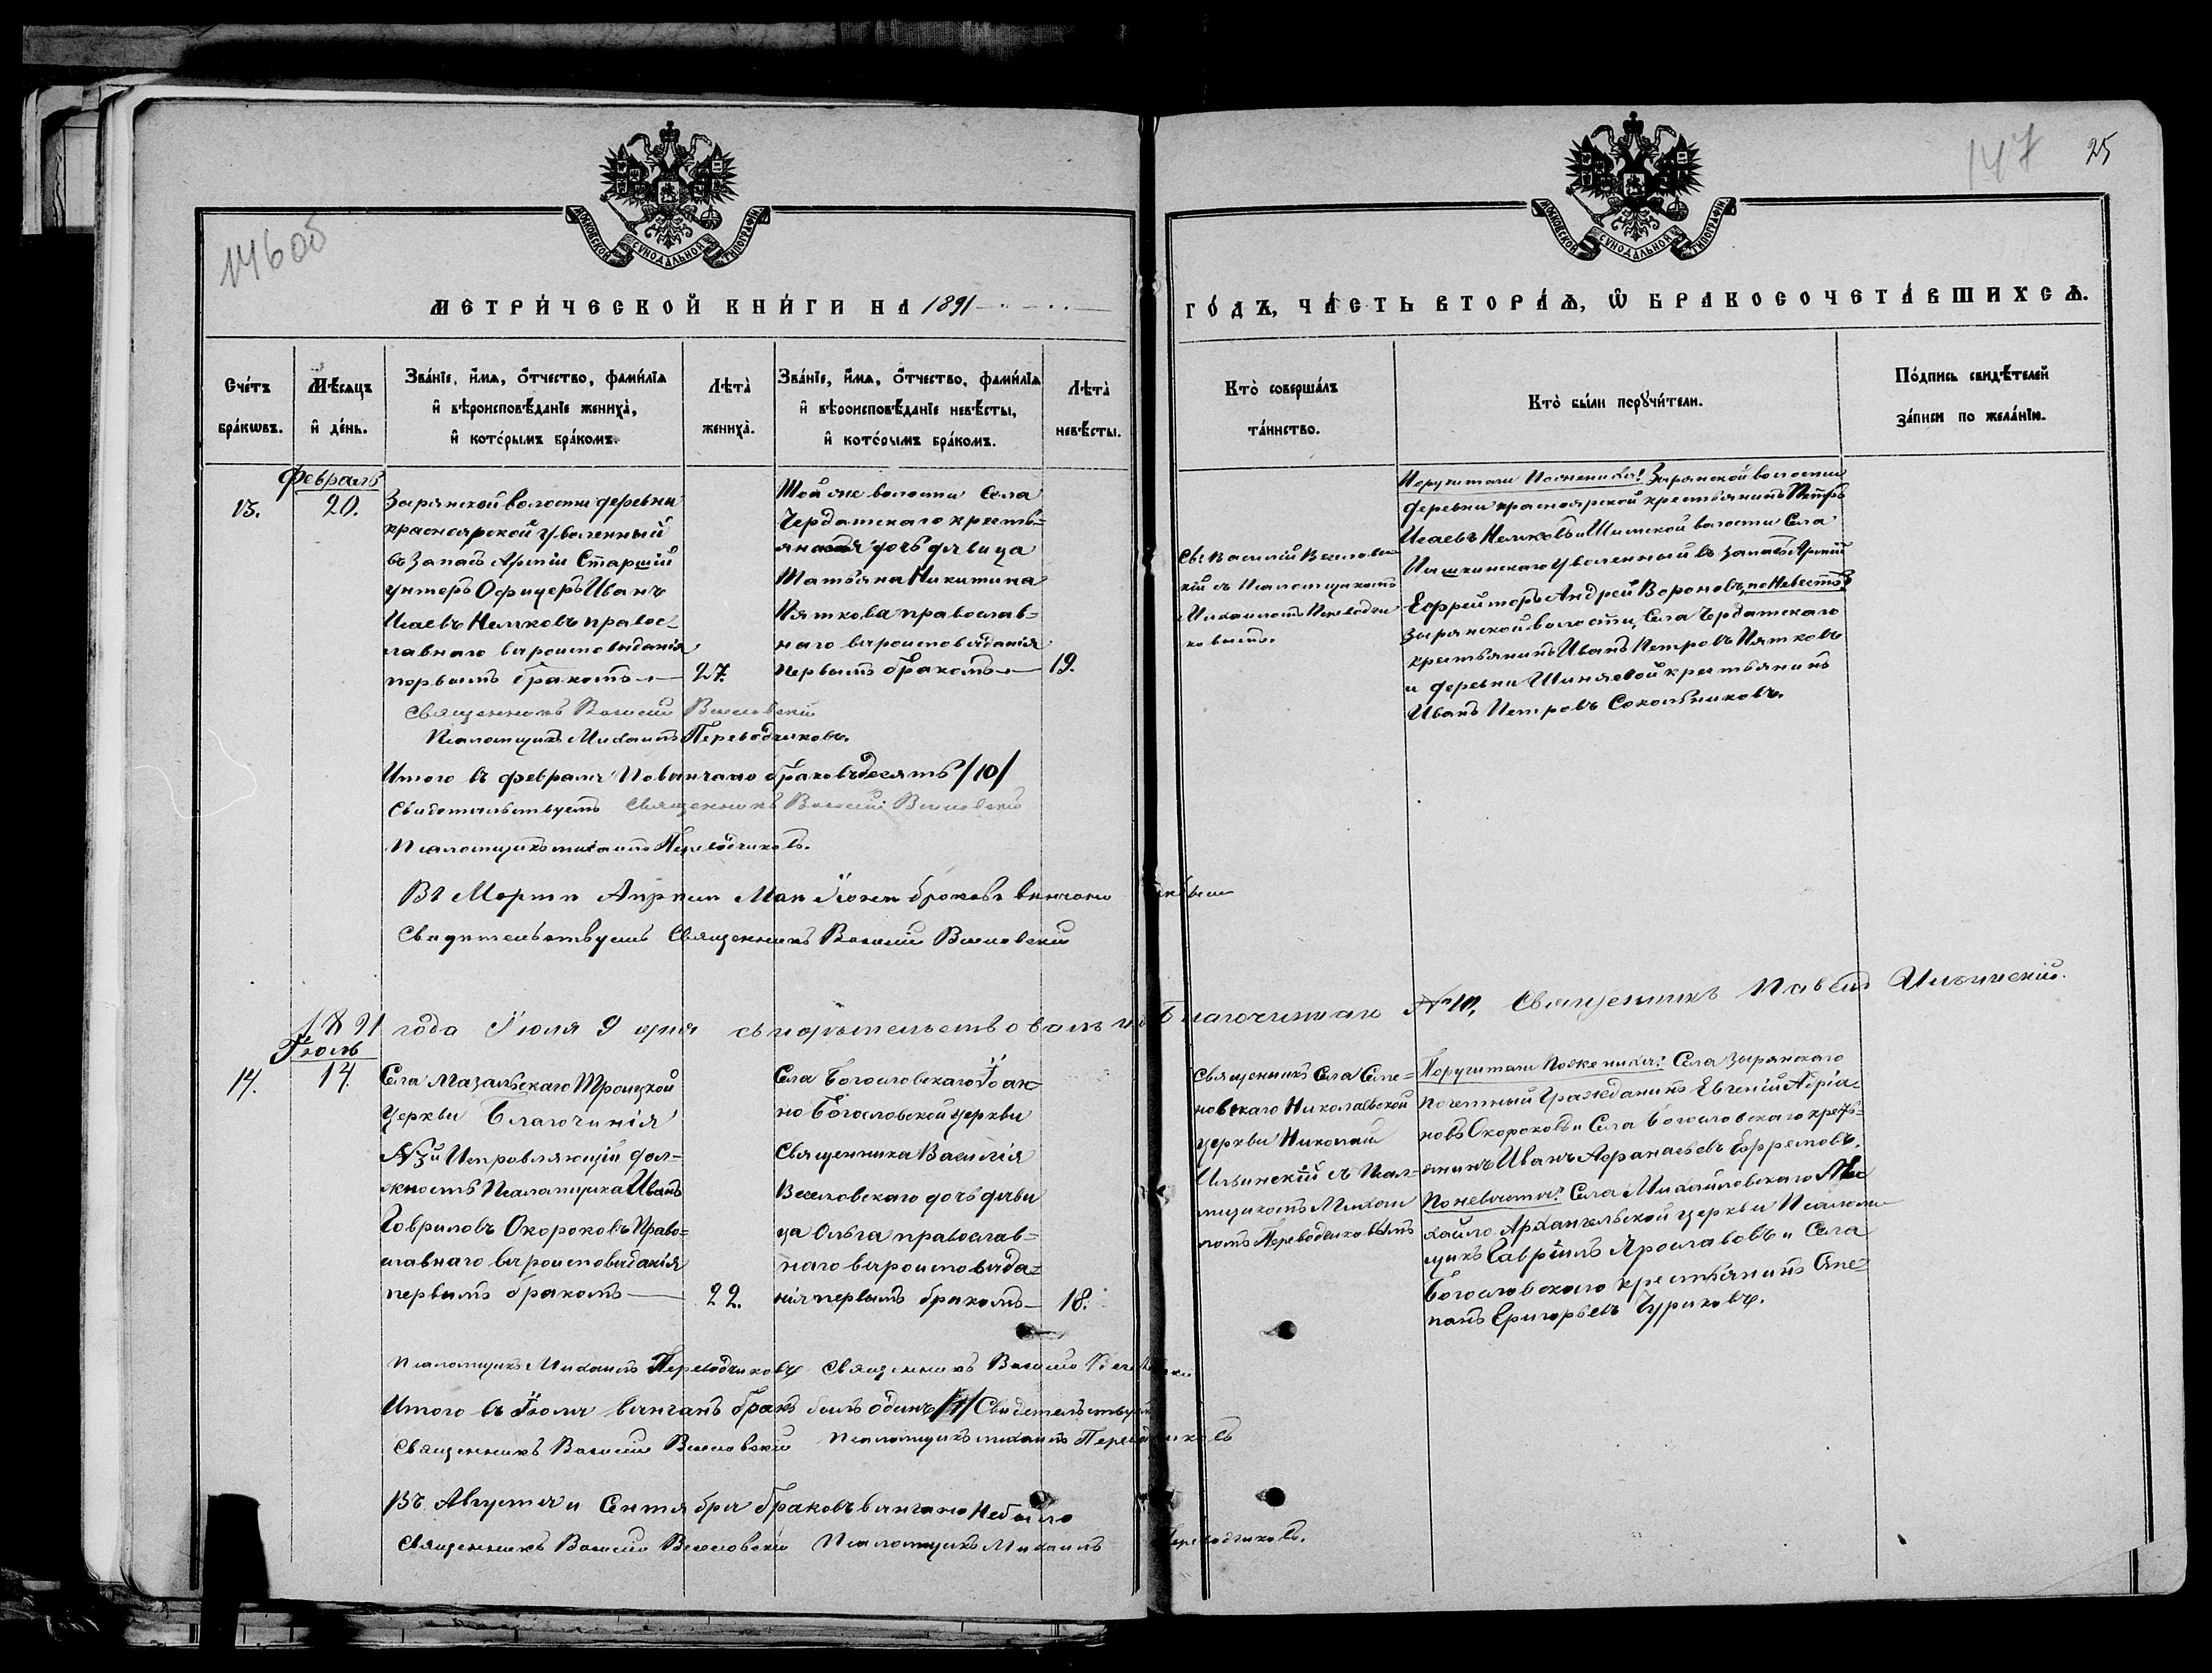 146об
147
25
МОСКОВСКОЙ СѴНОДАЛЬНОЙ ТИПОГРАФІИ
МОСКОВСКОЙ СѴНОДАЛЬНОЙ ТИПОГРАФІИ
МЕТРИ́ЧЕСКОЙ КНИ́ГИ НА 1891
ГО́ДЪ, ЧА́СТЬ ВТОРА́Ѧ, Ѡ БРАКОСОЧЕТА́ВШИХСѦ.
Сче́тъ
бра́кѡвъ.
Мѣ́сѧцъ
и҆ де́нь.
Зва́нїе, и҆́мѧ, о҆́тчество, фами́лїѧ
и҆ вѣроисповѣ́данїе жениха̀,
и҆ кото́рымъ бра́комъ.
Лѣта̀
жениха̀.
Зва́нїе, и҆́мѧ, о҆́тчество, фами́лїѧ
и҆ вѣроисповѣ́данїе невѣ́сты,
и҆ кото́рымъ бра́комъ.
Лѣта̀
невѣ́сты.
Кто̀ совершáлъ
та́инство.
Кто̀ бы́ли пору́чи́тели.
По́дпись свидѣ́телей
за́писи по жела́нїю.
13.
Февраль
20.
Зырянской волости деревни
красноярской уволенный
въ Запасъ Арміи Старшій
унтеръ Офицеръ Иванъ
Исаевъ Немковъ правос-
лавнаго вѣроисповѣданія
первымъ бракомъ
27.
Той же волости Села
Чердатскаго кресть=
янская дочь дѣвица
Татьяна Никитина
Пяткова православ=
наго вѣроисповѣданія
первымъ бракомъ
19.
Св: Василій Веселовс
кій съ Псаломщикомъ
Михаиломъ Переводчи
ковымъ.
Поручители По женихѣ: Зырянской волости
деревни красноярской крестьянинъ Петръ
Исаевъ Немковъ и Ишимской волости Села
уволенный въ запасъ Арміи
Ефрейторъ Андрей Вороновъ, по Невѣстѣ:
Зырянской волости, Села Чердатскаго
крестьянинъ Иванъ Петровъ Пятковъ
и деревни Шиняевой крестьянинъ
Иванъ Петровъ Сокольниковъ.
Священникъ Василій Веселовскій
Псаломщикъ Михаилъ Переводчиковъ.
Итого въ февралѣ Повѣнчано браковъ десять /10/
Свидѣтельствуетъ Священникъ Василій Веселовскій
Псаломщикъ михаилъ Переводчиковъ.
Въ Мартѣ Апрѣлѣ Маѣ Іюнѣ браковъ вѣнчано небыло
Свидѣтельствуетъ Священникъ Василій Веселовскій
1891 года Іюля 9 дня свидѣтельствовалъ и. д. Благочиннаго № 10, Священникъ Павелъ Ильинскій.
14.
Іюль
14.
Села Мазальскаго Троицкой
Церкви Благочинія
Исправляющій дол-
жность Псаломщика Иванъ
Гавриловъ Окороковъ Право=
славнаго вѣроисповѣданія
первымъ бракомъ
22.
Села Богословскаго Іоан=
но Богословской церкви
Священника Василія
Веселовскаго дочь дѣви
ца Ольга православ=
наго вѣроисповѣда=
нія первымъ бракомъ
18.
Священникъ Села Семе=
новскаго Николаевской
церкви Николай
Ильинскій съ Псал-
мщикомъ Михаи
ломъ Переводчиковымъ
Поручители По женихѣ: Села Зырянскаго
почетный Гражданинъ Евгеній Адріа-
новъ Окороковъ и Села Богословскаго кресть=
янинъ Иванъ Афанасьевъ Ефремовъ.
По невѣстѣ: Села Михайловскаго Ми
хайло Архангельской церкви Псалом
щикъ Гавріилъ Ярославовъ и Села
Богословскаго крестьянинъ Сте=
панъ Григорьевъ Чуриковъ.
Псаломщикъ Михаилъ Переводчиковъ Священникъ Василій Веселовскій
Итого въ Іюлѣ вѣнчанъ бракъ былъ одинъ /1/ Свидетельствуетъ
Священникъ Василій Веселовскій Псаломщикъ михаилъ Переводчиковъ
Въ Августѣ и Сентябрѣ браковъ вѣнчано Небыло
Священникъ Василій Веселовскій Псаломщикъ Михаилъ Переводчиковъ.